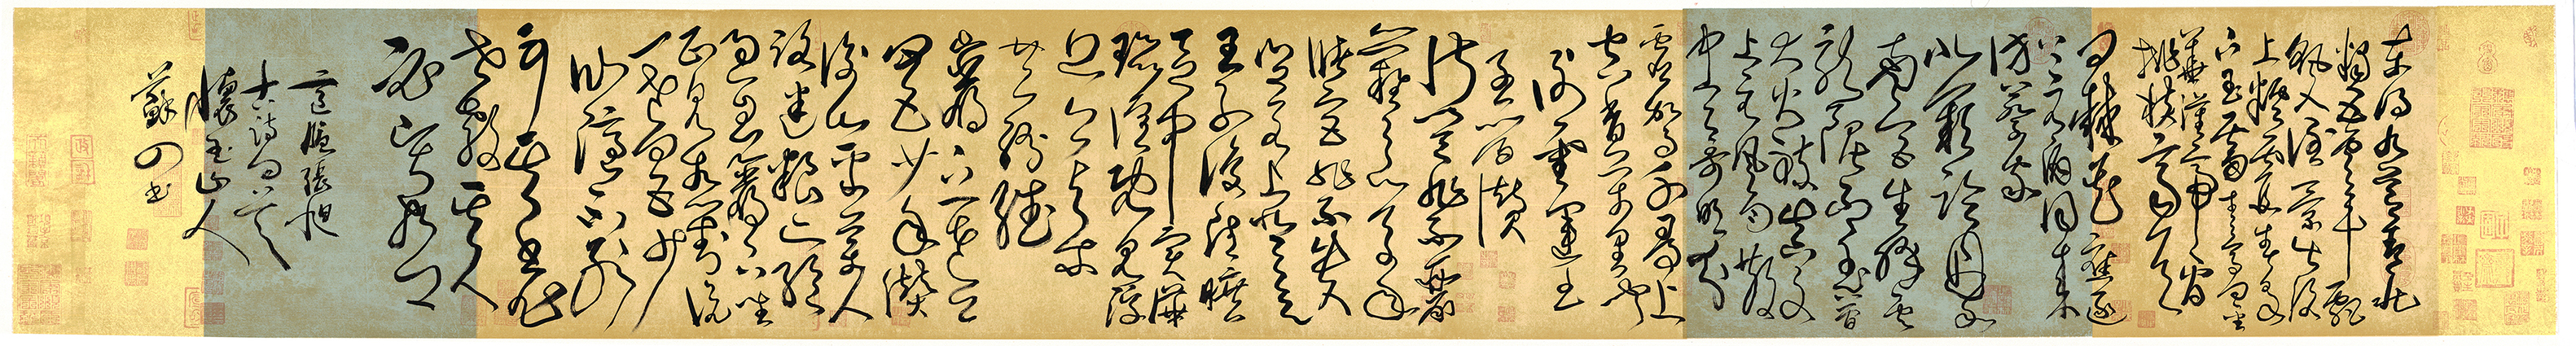 東明九芝蓋北
燭五雲車飄
飖入倒景出沒
上煙霞春泉
下玉霤青鳥向金
華漢帝看
桃核齊侯
問棗花應逐
上元酒同來
訪蔡家
北闕臨丹水
南宮生絳雲
龍泥印玉簡
大火煉真文
上元風雨散
中天歌吹分
靈駕千尋上
空香萬里聞
謝靈運王
子晉讚
淑質非不麗
難之以萬年
儲宮非不貴
豈若上登天
王子復清曠
區中實譁
囂喧既見浮
丘公與爾
共紛繙
巖下一老公
四五少年讚
衡山采藥人
路迷糧亦絕
過息巖下坐
正見相對說
一老四五少
仙隱不別
可其書非
世教其人
必賢哲
意臨張旭
古詩四首
懷玉山人